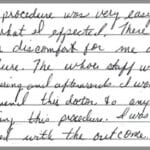 procedure was very easy
what I expected. There
or discomfort for me d
ure. The whole staff w
uring and afterwards. I wou
mend this doctor to any
ing this procedure. I was
ed with the outcome.